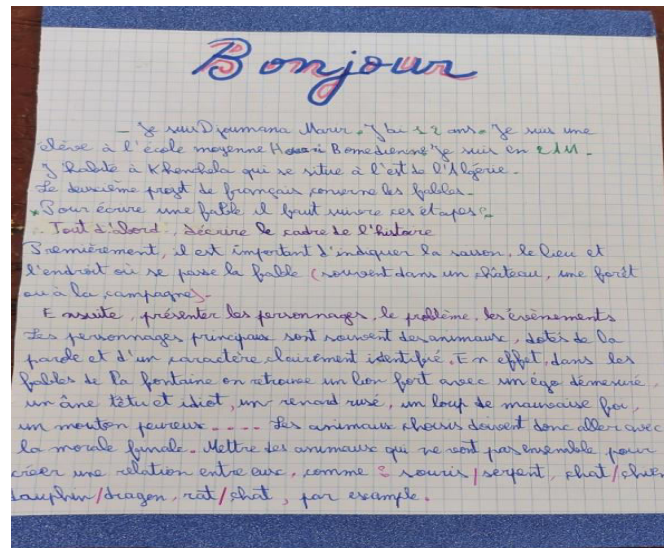 Bonjour
- Je suis Djoumana Marir. J'ai 12 ans. Je suis une
élève à l'école moyenne Houari Bomediene Je suis en 2AM.
J'habite à Khenchela qui se situe à l'est de l'Algérie.
Le deuxième projet de français concerne les fables.
Pour écrire une fable il faut suivre ces étapes:
Tout d'abord, décrire le cadre de l'histoire
Premièrement, il est important d'indiquer la saison, le lieu et
l'endroit où se passe la fable (souvent dans un château, une forêt
ou à la campagne).
Ensuite, présenter les personnages, le problème, les évènements
Les personnages principaux sont souvent des animaux, dotés de la
parole et d'un caractère clairement identifié. En effet, dans les
fables de la fontaine on retrouve un lion fort avec un égo démesuré,
un âne têtu et idiot, un renard rusé, un loup de mauvaise foi,
un mouton peureux.... Les animaux choisis doivent donc aller avec
la morale finale. Mettre des animaux qui ne vont pas ensemble pour
créer une relation entre eux, comme : souris/serpent, chat/chien
dauphin/dragon, rat/chat, par exemple.